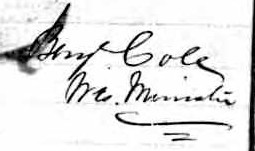 Benj. Cole
Wes. Minister